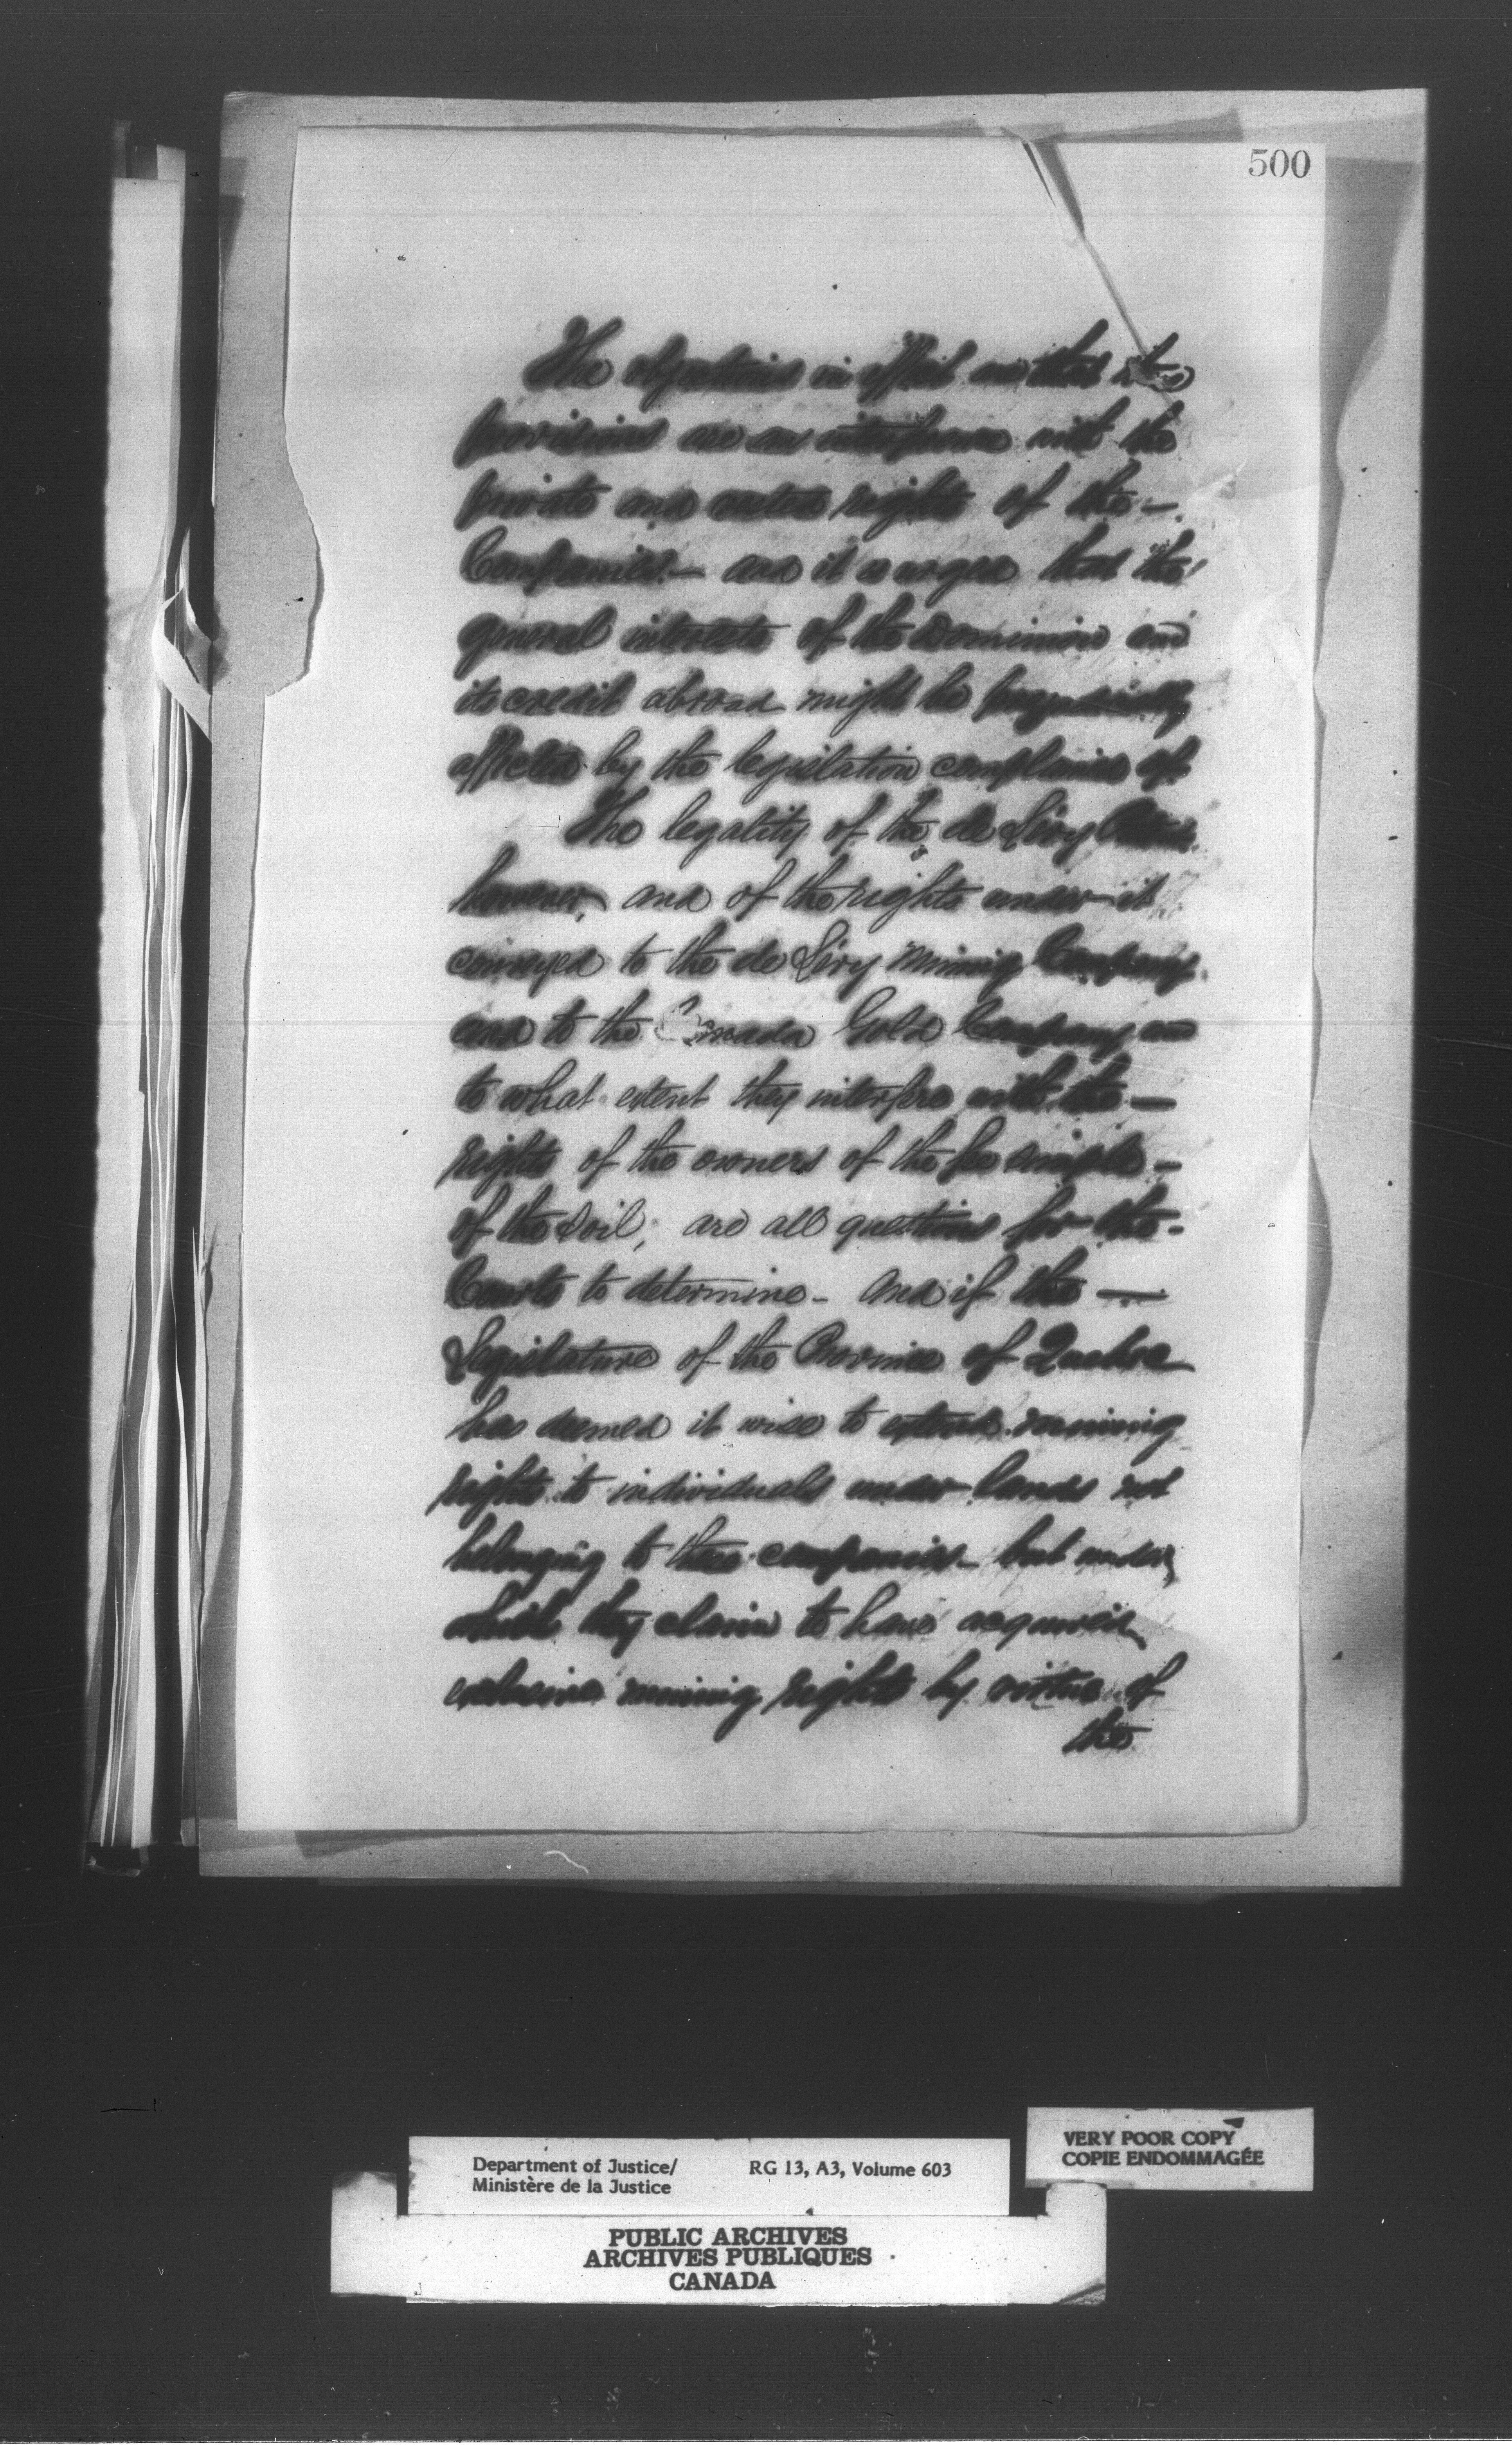 500
The objections in effect are that its
provisions are an interference with the
private and vested rights of the –
Companies – and it is urged that the
general interests of the Dominion and
its credit abroad might be prejudicially
affected by the legislation complained of.
The legality of the de Léry
however, and of the rights under it
conveyed to the de Léry Mining Company
and to the Canada Gold Company and
to what extent they interfere with the –
rights of the owners of the fee simple –
of the soil, are all questions for the –
Courts to determine – and if the –
Legislature of the Province of Quebec
has deemed it wise to extend mining
rights to individuals under lands not
belonging to these companies – but under
which they claim to have acquired
exclusive mining rights by virtue of
the
Department of Justice/
Ministère de la Justice
RG 13, A3, Volume 603
VERY POOR COPY
COPIE ENDOMMAGÉE
PUBLIC ARCHIVES
ARCHIVES PUBLIQUES
CANADA